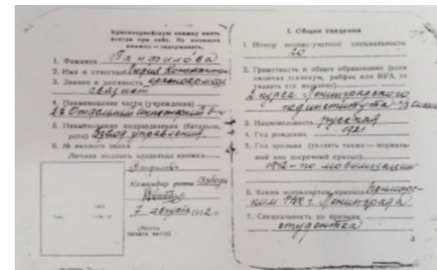 Красноармейскую книжку иметь
всегда при себе. Не имеющих
книжек — задерживать.
1. Фамилия Панфилова
2. Имя и отчество Мария Константин
3. Звание и должность красноармеец
связист
4. Наименование части (учреждения)
28 Отдельный
5. Наименование подразделения (батальон,
рота) Взвод управления
6. № личного знака
Личная подпись владельца книжки
Командир роты взвода
7 августа 1942 г.
(Место
печати части)
I. Общие сведения
1. Номер военно-учетной специальности
20
2. Грамотность и общее образование (если
окончил техникум, рабфак или ВУЗ, то
указать его название)
2 курса Ленинградского
пединститута
3. Национальность русская
4. Год рождения 1921
5. Год призыва (указать также — нормаль-
ный или досрочный призыв)
1942 - по мобилизации
6. Каким военкоматом призван
РВК г. Ленинграда
7. Специальность до призыва
студентка